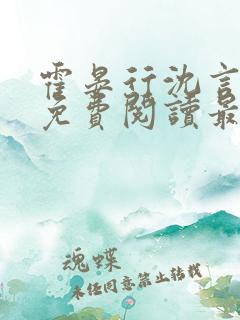 霍晏行沈言
免費閱讀最
魂蝶
未经同意禁止转载